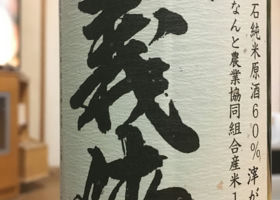 石純米原酒60%滓が
なんと農業協同組合産米1
義侠